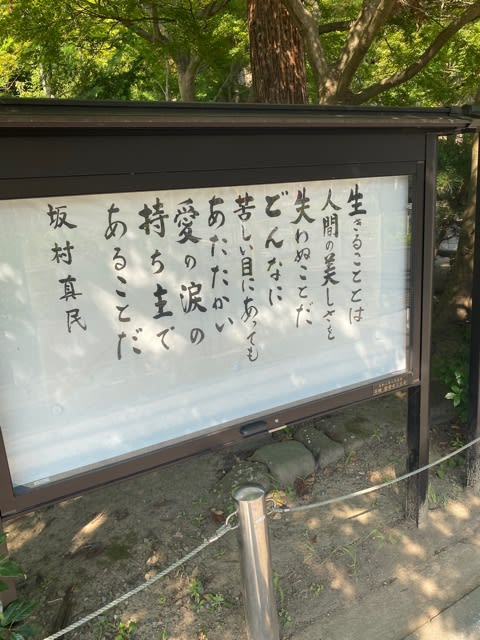 生きることとは
人間の美しさを
失わぬことだ
どんなに
苦しい目にあっても
あたたかい
愛の涙の
持ち主で
あることだ
坂村真民